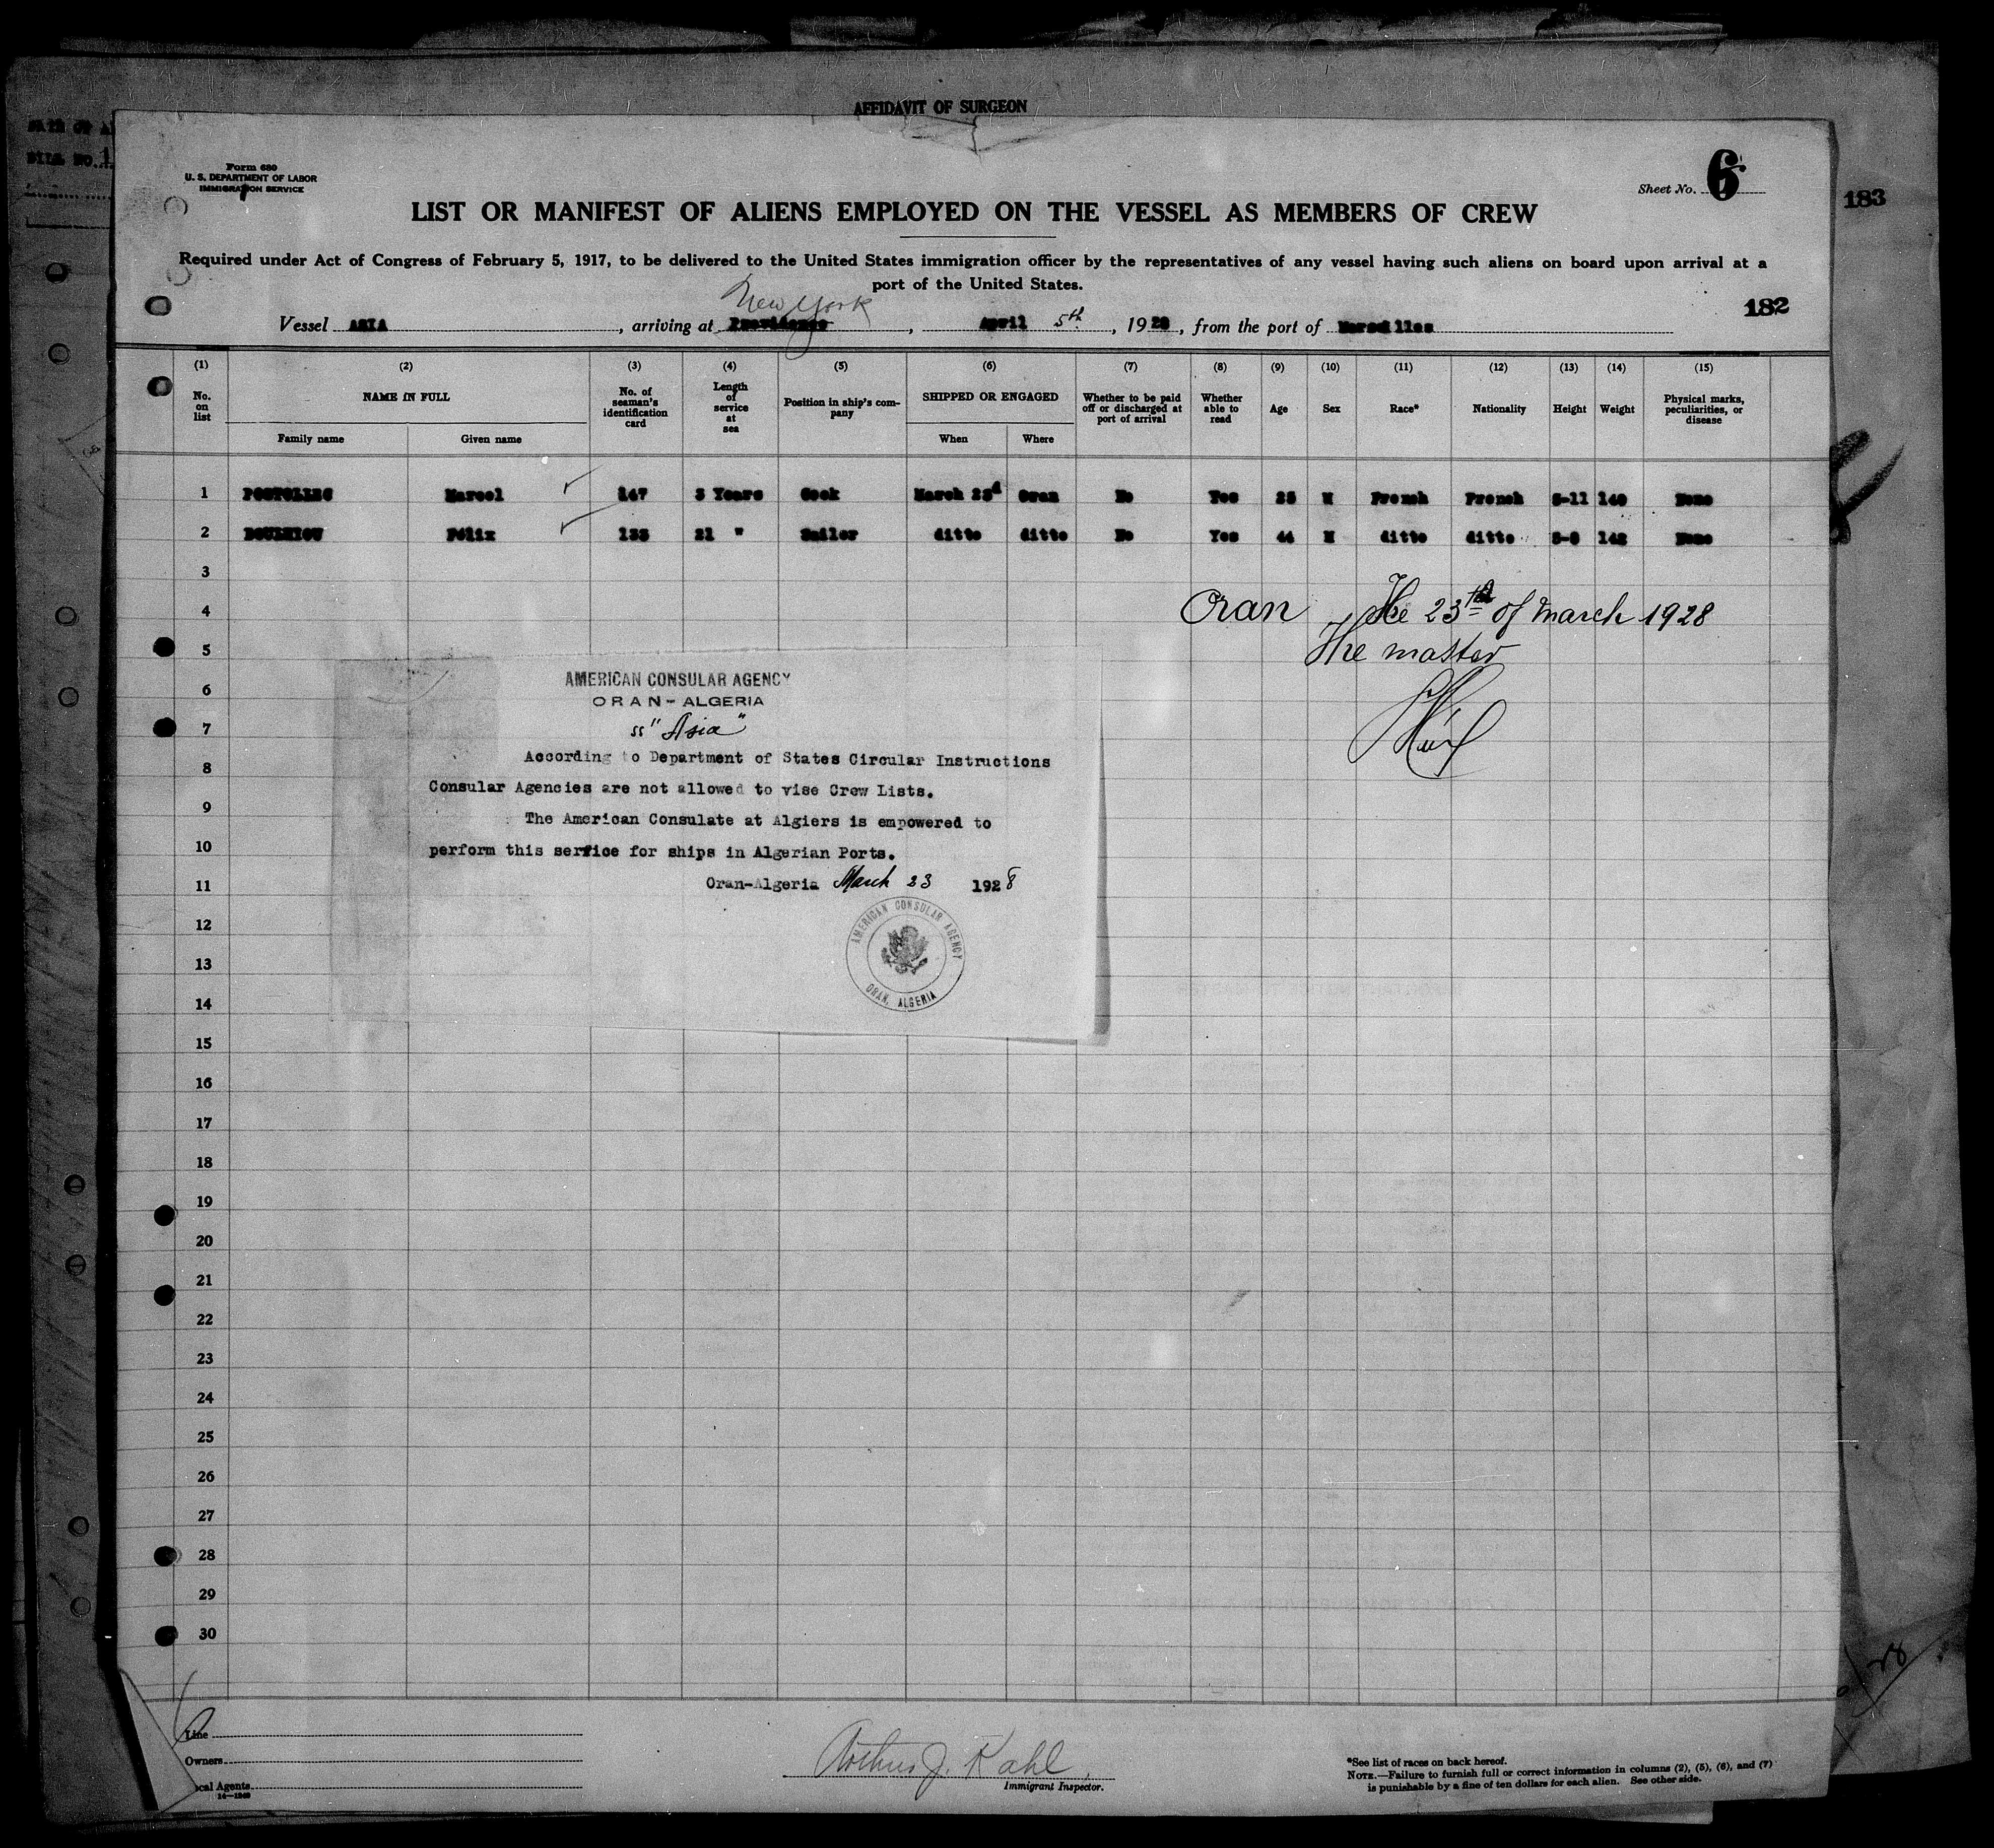 AFFIDAVIT OF SURGEON
Form 680
U. S. DEPARTMENT OF LABOR
IMMIGRATION SERVICE
Sheet No. 6
183
LIST OR MANIFEST OF ALIENS EMPLOYED ON THE VESSEL AS MEMBERS OF CREW
Required under Act of Congress of February 5, 1917, to be delivered to the United States immigration officer by the representatives of any vessel having such aliens on board upon arrival at a
port of the United States.
182
New York
Vessel ASIA, arriving at Providence, April 5th, 1928, from the port of Marseilles
(1) (2) (3) (4) (5) (6) (7) (8) (9) (10) (11) (12) (13) (14) (15)
No. on list NAME IN FULL No. of seaman's identification card Length of service at sea Position in ship's company SHIPPED OR ENGAGED Whether to be paid off or discharged at port of arrival Whether able to read Age Sex Race* Nationality Height Weight Physical marks, peculiarities, or disease
Family name Given name When Where
1 Marcel 147 3 Years Cook March 23d Oran No Yes 25 M French French 5-11 140 None
2 Félix 133 21 " Sailor ditto ditto No Yes 44 M ditto ditto 142 None
3
4 Oran The 23 of March 1928
5 The master
6
7
8
9
10
11
12
13
14
15
16
17
18
19
20
21
22
23
24
25
26
27
28
29
30
AMERICAN CONSULAR AGENCY
ORAN - ALGERIA
ss "Asia"
According to Department of States Circular Instructions
Consular Agencies are not allowed to vise Crew Lists.
The American Consulate at Algiers is empowered to
perform this serfice for ships in Algerian Ports.
Oran-Algeria March 23 1928
AMERICAN CONSULAR AGENCY
ORAN, ALGERIA
Line
Owners
ocal Agents
14—1240
Arthur J. Kahl
Immigrant Inspector.
*See list of races on back hereof.
NOTE.—Failure to furnish full or correct information in columns (2), (5), (6), and (7)
is punishable by a fine of ten dollars for each alien. See other side.